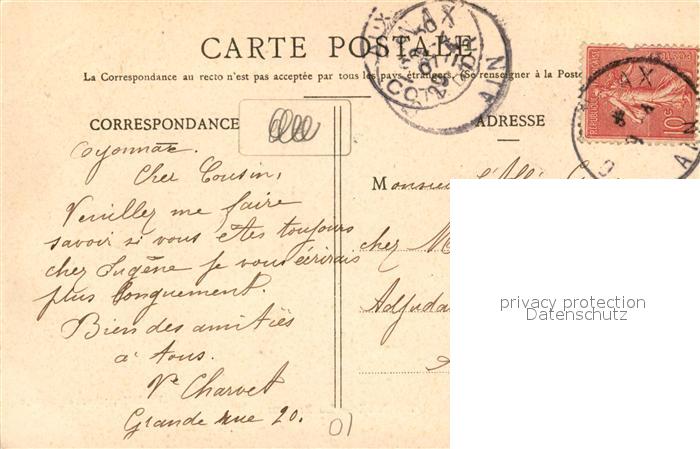 CARTE POSTALE
La Correspondance au recto n'est pas acceptée par tous les pays étrangers. (Se renseigner à la Poste
CORRESPONDANCE
Oyonnax.
Cher Cousin,
Veuillez me faire
savoir si vous êtes toujours
chez Eugène je vous écrirais
plus longuement.
Bien des amitiés
à tous.
Ve Charvet
Grande rue 20.
01
ADRESSE
Monsieur
chez M
Adjuda
AIN
10c
AX
AIN
privacy protection
Datenschutz